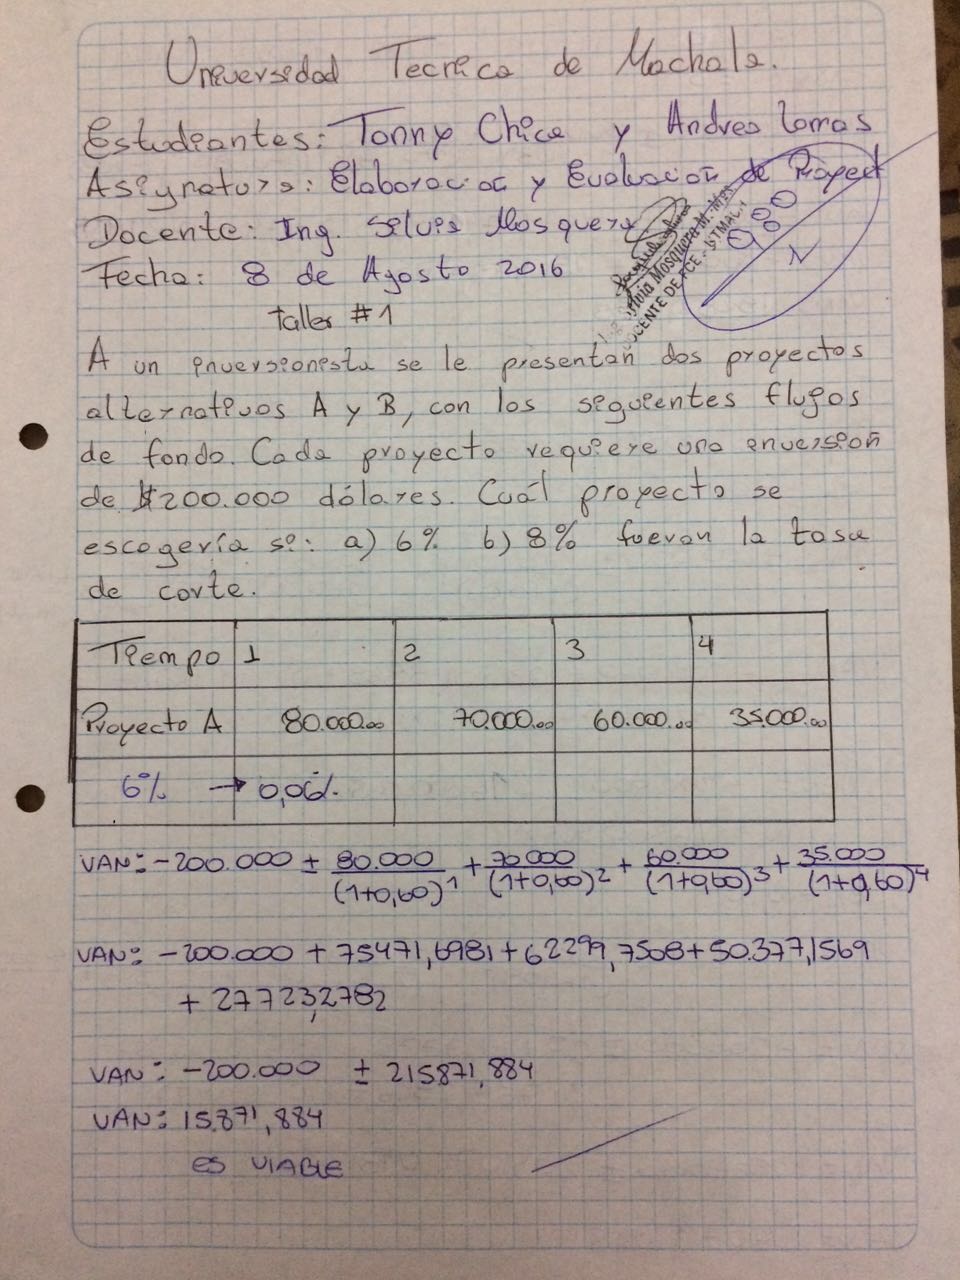 Universidad Tecnica de Machala.
Estudiantes: Tonny Chica y Andrea Lomas
Asignatura: Elaboración y Evaluación de Proyect
Docente: Ing. Silvia Mosquera
Fecha: 8 de Agosto 2016
Silvia Mosquera M. Mgs
DOCENTE DE FCE - UTMACH
taller #1
A un inversionista se le presentan dos proyectos
alternativos A y B, con los siguientes flujos
de fondo. Cada proyecto requiere una inversion
de $200.000 dólares. Cuál proyecto se
escogería si: a) 6% b) 8% fueran la tasa
de corte.
Tiempo 1 2 3 4
Proyecto A 80.000.00 70.000.00 60.000.00 35.000.00
6% → 0,06%.
VAN: -200.000 ± 80.000/(1+0,60)^1 + 70.000/(1+0,60)^2 + 60.000/(1+0,60)^3 + 35.000/(1+0,60)^4
VAN: -200.000 + 75471,6981 + 62299,7508 + 50.377,1569
+ 27723,2782
VAN: -200.000 ± 215871,884
VAN: 15.871,884
es VIABLE